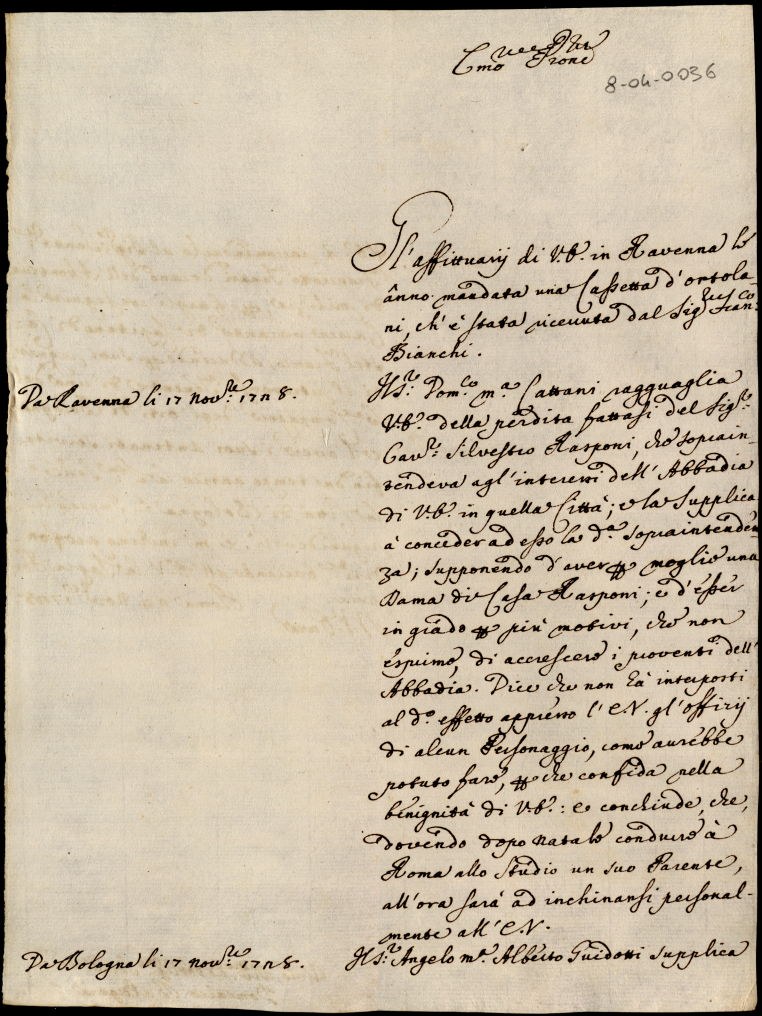 Em̃o e Reṽmo Pr̃one
8-04-0036
Gl'affittuarij di V.E. in Ravenna le
ànno mandata una Cassetta d'ortola-
ni, ch'è stata ricevuta dal Sig.r Fran.co
Bianchi.
Da Ravenna li 17 Nov.re 1728.
Il S.r Dom.co m.a Cattani ragguaglia
V.E. della pérdita fattasi del Sig.r
Cav.re Silvestro Rasponi, che soprain-
tendeva agl'interessi dell'Abbadia
di V.E. in quella Città; e la supplica
à conceder ad esso la d.a sopraintenden-
za; supponendo d'aver p moglie una
Dama di Casa Rasponi; e d'ésser
in grado p più motivi, che non
ésprime, di accrescere i proventi dell'
Abbadia. Dice che non hà interposti
al d.o effetto appresso l'E.V. gl'offizij
di alcun Personaggio, come avrebbe
potuto fare, p che confida nella
benignità di V.E.: e conchiude, che,
dovendo dopo Natale condurre à
Roma allo Studio un suo Parente,
all'ora sarà ad inchinarsi personal-
mente all'E.V.
Da Bologna li 17 nov.re 1728.
Il S.r Angelo m.a Alberto Guidotti supplica